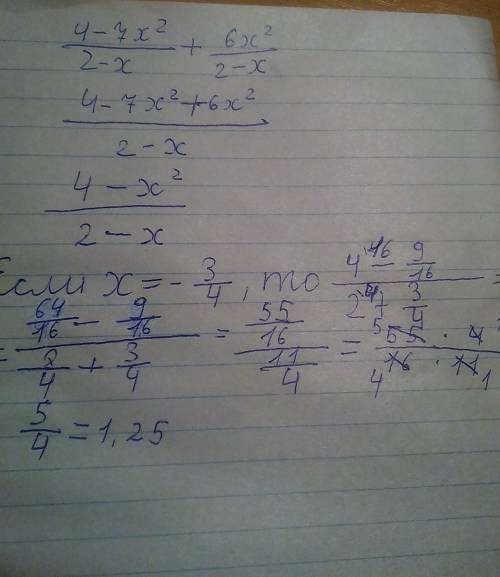 4-7x²/2-x + 6x²/2-x
4-7x²+6x²/2-x
4-x²/2-x
Если x=-3/4, то 4·16 - 9/16 / 2·4 + 3/4 =
= 64/16 - 9/16 / 8/4 + 3/4 = 55/16 / 11/4 = 5 55 · 4 / 4 16 · 11 1
5/4 = 1,25